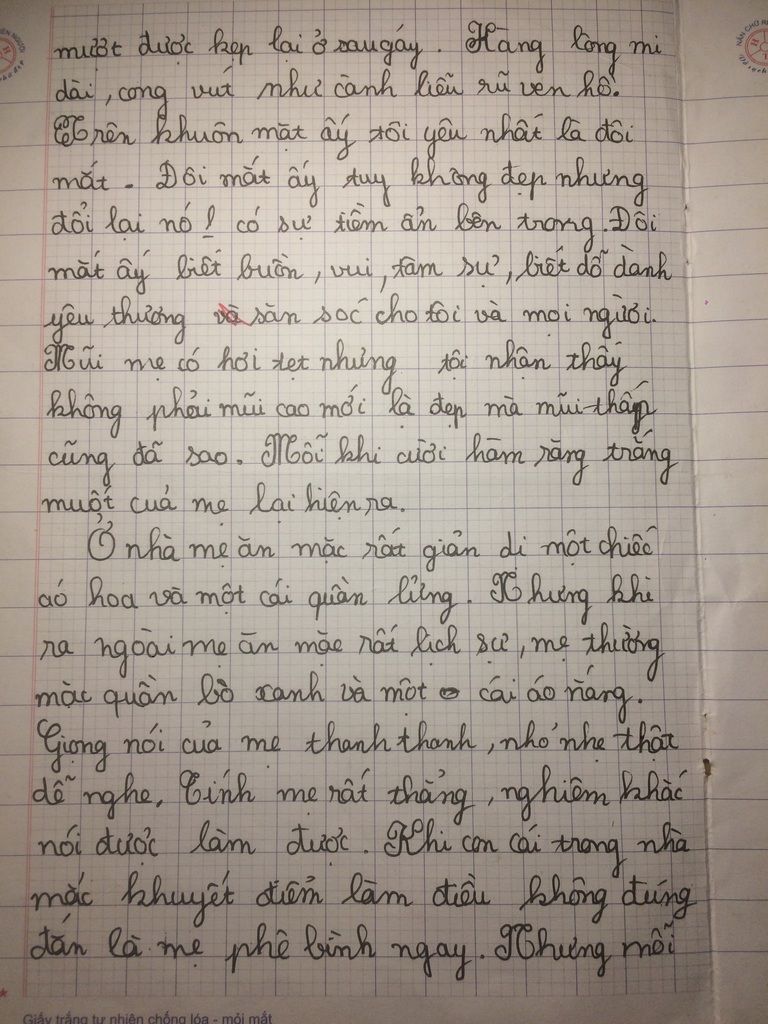 mượt được kẹp lại ở sau gáy. Hàng lông mi
dài, cong vút như cành liễu rũ ven hồ.
Trên khuôn mặt ấy tôi yêu nhất là đôi
mắt. Đôi mắt ấy tuy không đẹp nhưng
đổi lại nó ! có sự tiềm ẩn bên trong. Đôi
mắt ấy biết buồn, vui, tâm sự, biết dỗ dành
yêu thương và săn soc cho tôi và mọi người.
Mũi mẹ có hơi tẹt nhưng tôi nhận thấy
không phải mũi cao mới là đẹp mà mũi thấp
cũng đã sao. Mỗi khi cười hàm răng trắng
muốt của mẹ lại hiện ra.
Ở nhà mẹ ăn mặc rất giản dị một chiếc
áo hoa và một cái quần lửng. Nhưng khi
ra ngoài mẹ ăn mặc rất lịch sự, mẹ thường
mặc quần bò xanh và một cái áo nắng.
Giọng nói của mẹ thanh thanh, nhỏ nhẹ thật
dễ nghe, Tính mẹ rất thẳng, nghiêm khắc
nói được làm được. Khi con cái trong nhà
mắc khuyết điểm làm điều không đúng
đắn là mẹ phê bình ngay. Nhưng mỗi
Giấy trắng tự nhiên chống lóa - mỏi mắt